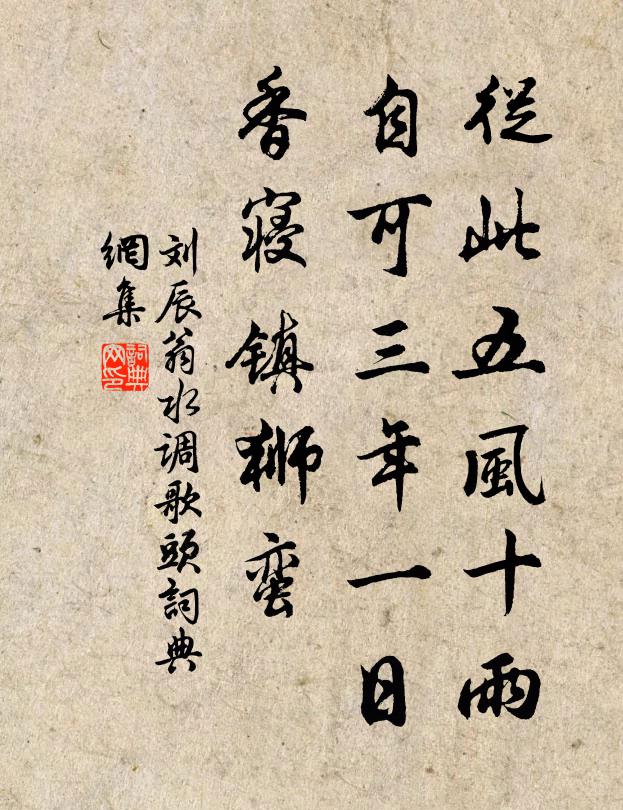 從此五風十雨
自可三年一日
香寢镇狮蛮
刘辰翁水调歌頭詞典
網集
詞典
网印